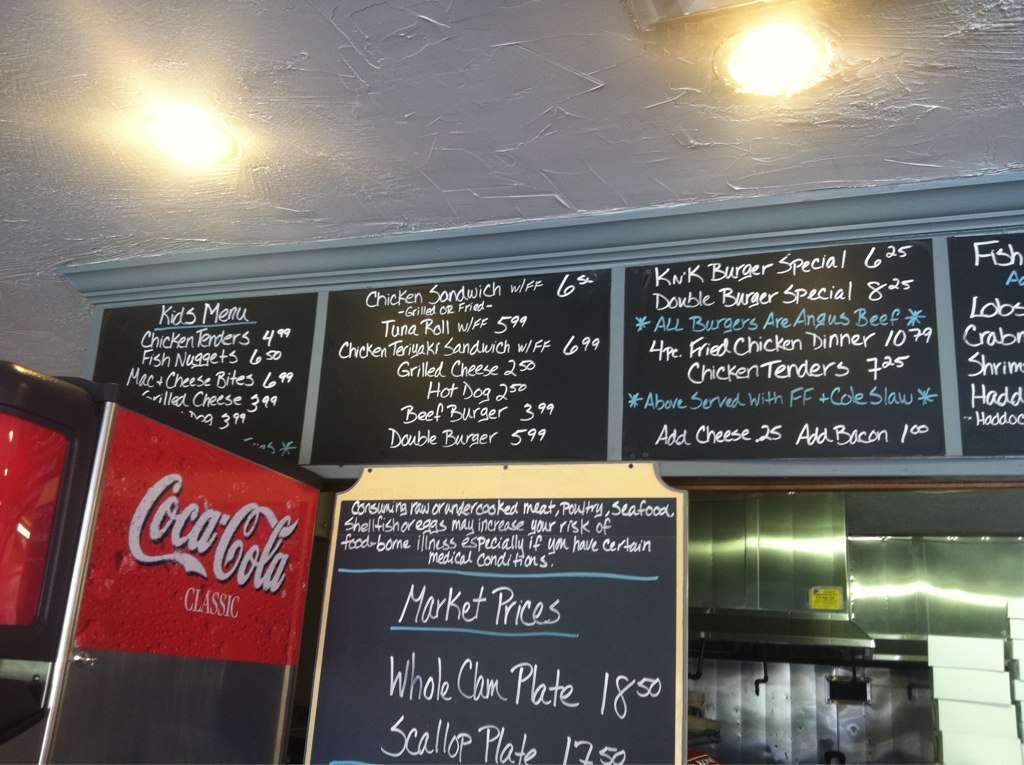 Kids Menu
Chicken Tenders 4.99
Fish Nuggets 6.50
Mac + Cheese Bites 6.99
Grilled Cheese 3.99
Dog 3.99
Chicken Sandwich w/FF 6.50
-Grilled OR Fried-
Tuna Roll w/FF 5.99
Chicken Teriyaki Sandwich w/FF 6.99
Grilled Cheese 2.50
Hot Dog 2.50
Beef Burger 3.99
Double Burger 5.99
KniK Burger Special 6.25
Double Burger Special 8.25
*ALL Burgers Are Angus Beef*
4pc. Fried Chicken Dinner 10.79
Chicken Tenders 7.25
*Above Served With FF + Cole Slaw*
Add Cheese .25 Add Bacon 1.00
Fish
Lobs
Crabm
Shrim
Hadd
Haddoc
Coca-Cola
CLASSIC
Consuming raw or undercooked meat, Poultry, Seafood,
Shellfish or eggs may increase your risk of
food-borne illness especially if you have certain
medical conditions.
Market Prices
Whole Clam Plate 18.50
Scallop Plate 17.50